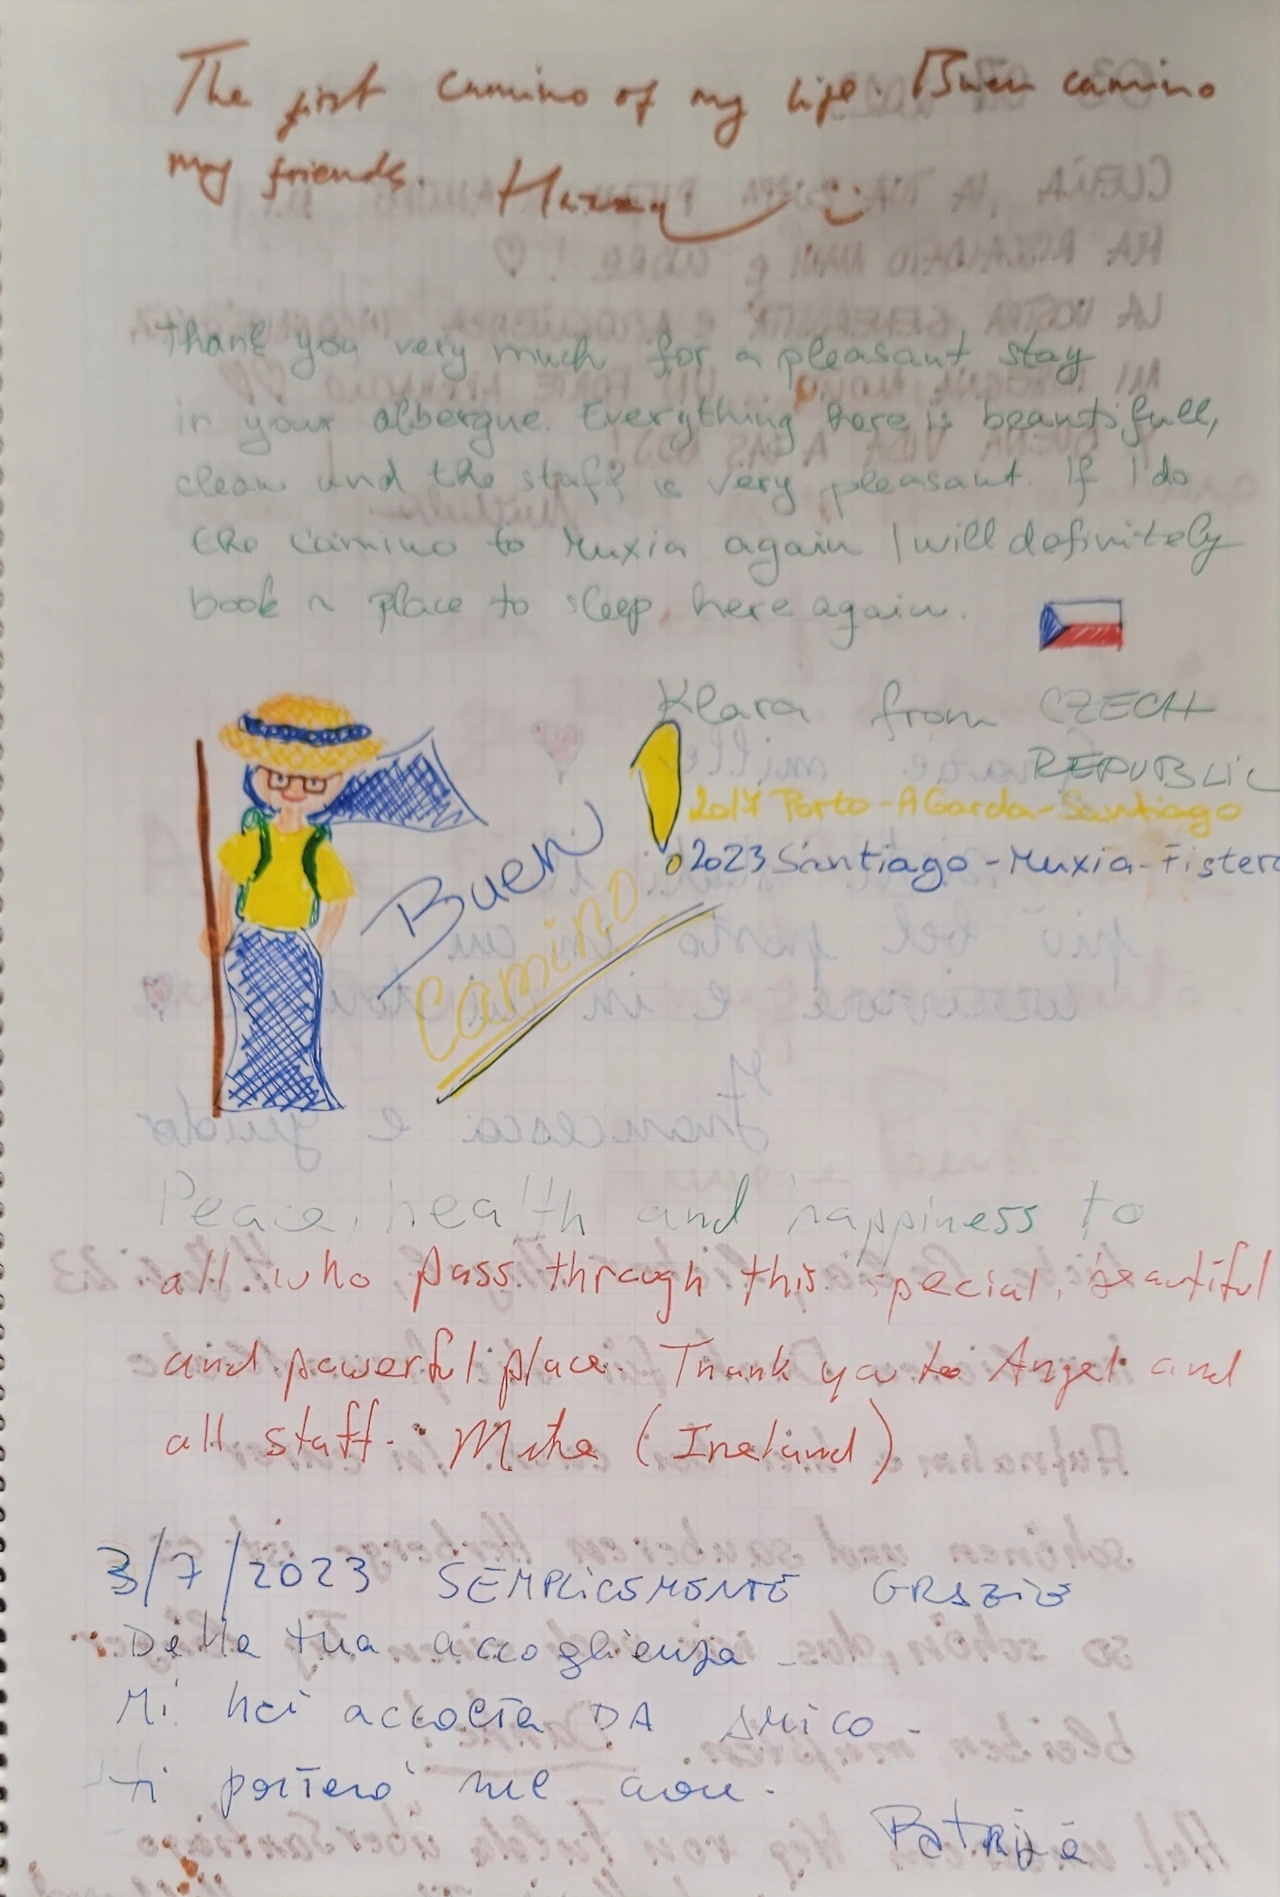 The first camino of my life. Buen camino
my friends. Harry
Thank you very much for a pleasant stay
in your albergue. Everything here is beautifull,
clean and the staff is very pleasant. If I do
the camino to Muxia again I will definitely
book a place to sleep here again.
Klara from CZECH
REPUBLIC
2017 Porto-A Garda-Santiago
2023 Santiago-Muxia-Fistera
Buen
camino
!
Peace, health and happiness to
all who pass through this special, beautiful
and powerful place. Thank you to Angel and
all staff. Mike (Ireland)
3/7/2023 SEMPLICEMENTE GRAZIE
Della tua accoglienza -
Mi hai accolta DA AMICO -
ti porterò nel cuore.